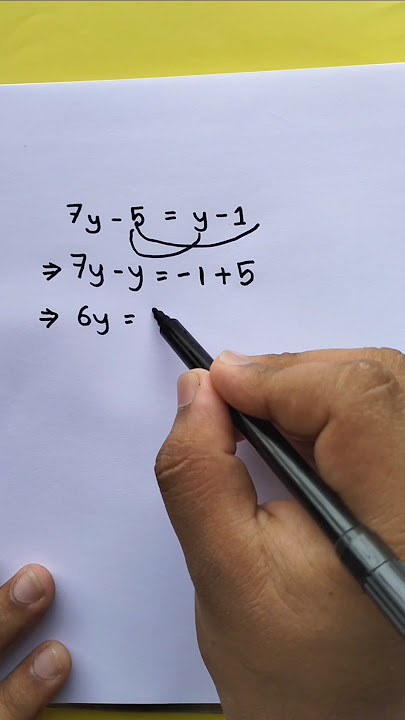 7y - 5 = y - 1
⇒ 7y - y = -1 + 5
⇒ 6y =